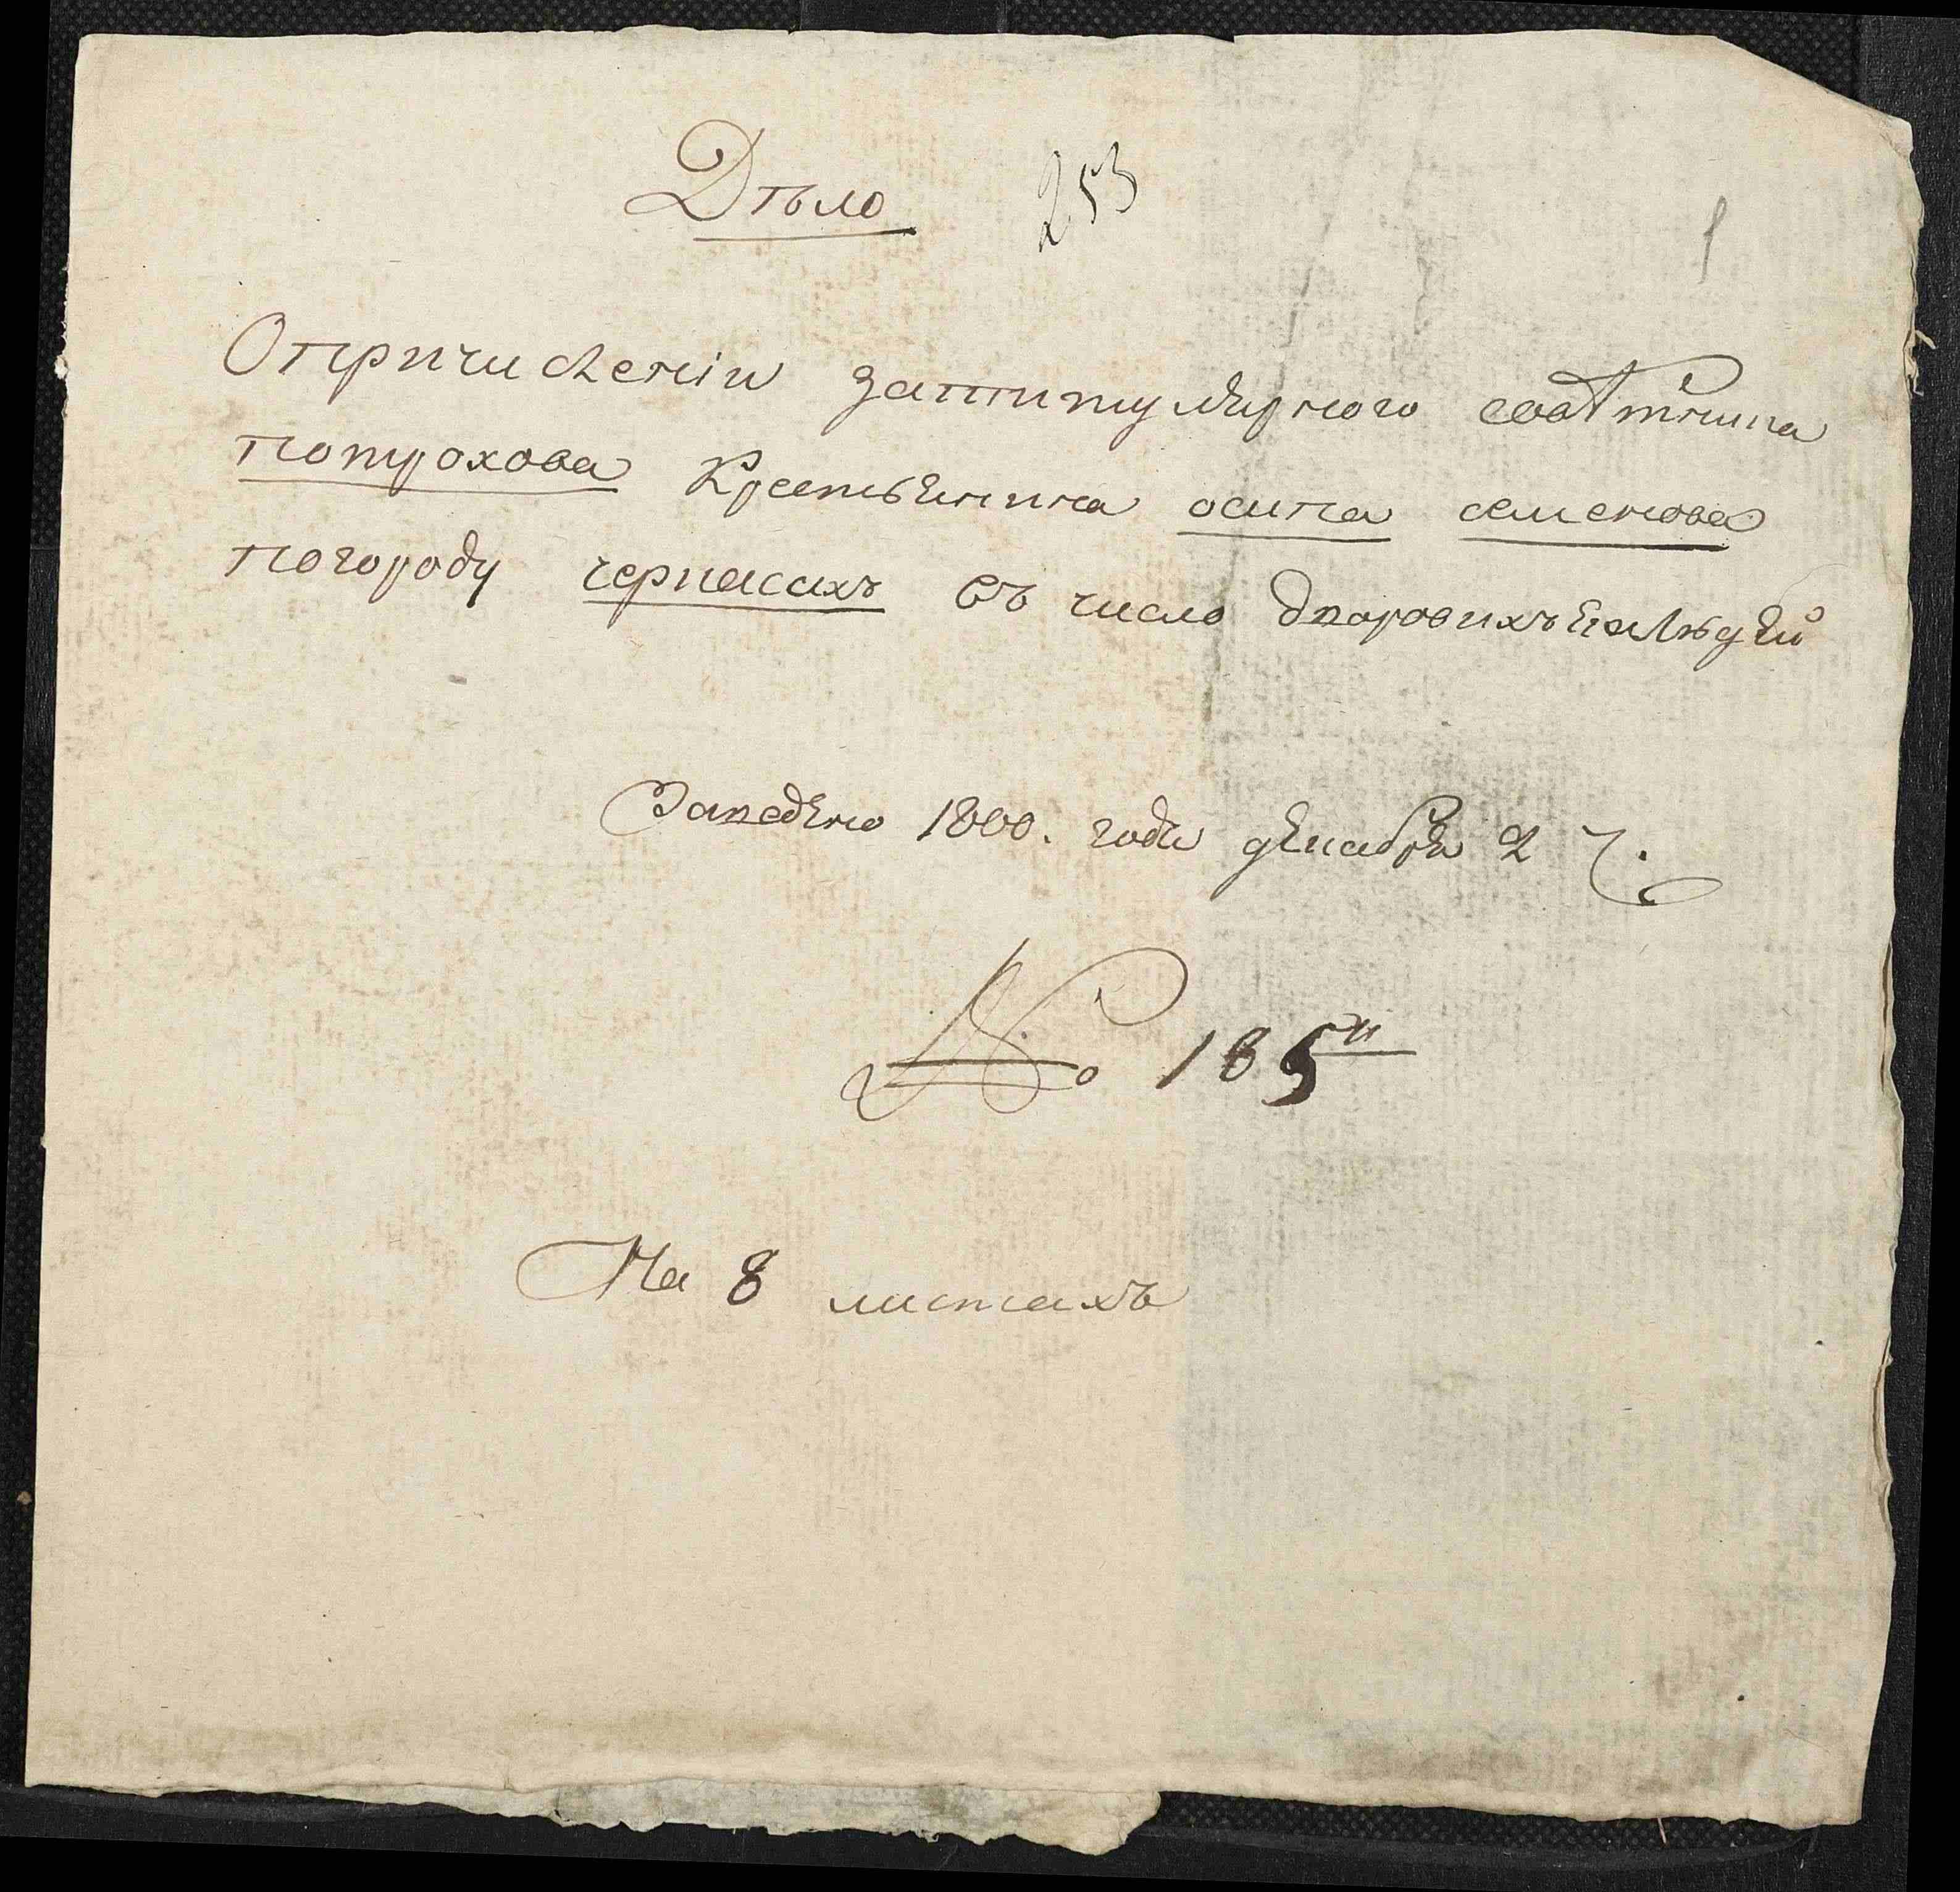 Дѣло 253
1
Опричисленіи затитулярного советника
попурохова крестьенина осипа семенова
погороду черкасахъ въ число дворовихъ людей
Заведено 1800. года декабря 2 ч.
№ 185й
На 8 листахъ